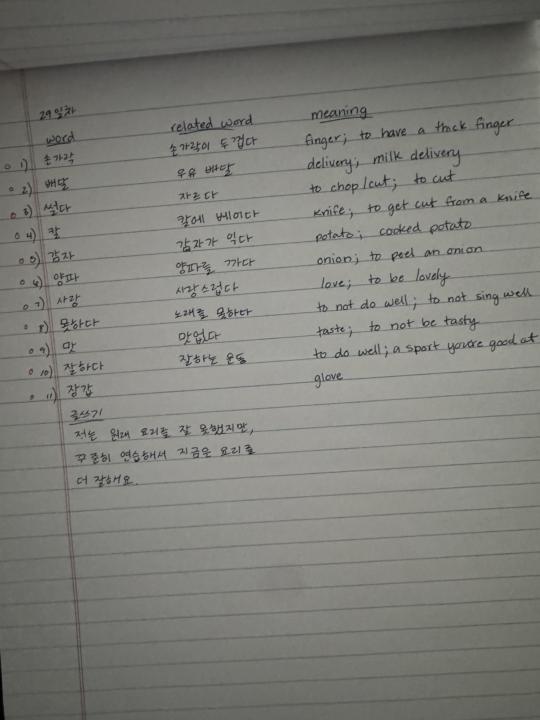 29일차
word related word meaning
1) 손가락 손가락이 두껍다 finger; to have a thick finger
2) 배달 우유 배달 delivery; milk delivery
3) 썰다 자르다 to chop/cut; to cut
4) 칼 칼에 베이다 knife; to get cut from a knife
5) 감자 감자가 익다 potato; cooked potato
6) 양파 양파를 까다 onion; to peel an onion
7) 사랑 사랑스럽다 love; to be lovely
8) 못하다 노래를 못하다 to not do well; to not sing well
9) 맛 맛없다 taste; to not be tasty
10) 잘하다 잘하는 운동 to do well; a sport you're good at
11) 장갑 glove
글쓰기
저는 원래 요리를 잘 못했지만,
꾸준히 연습해서 지금은 요리를
더 잘해요.